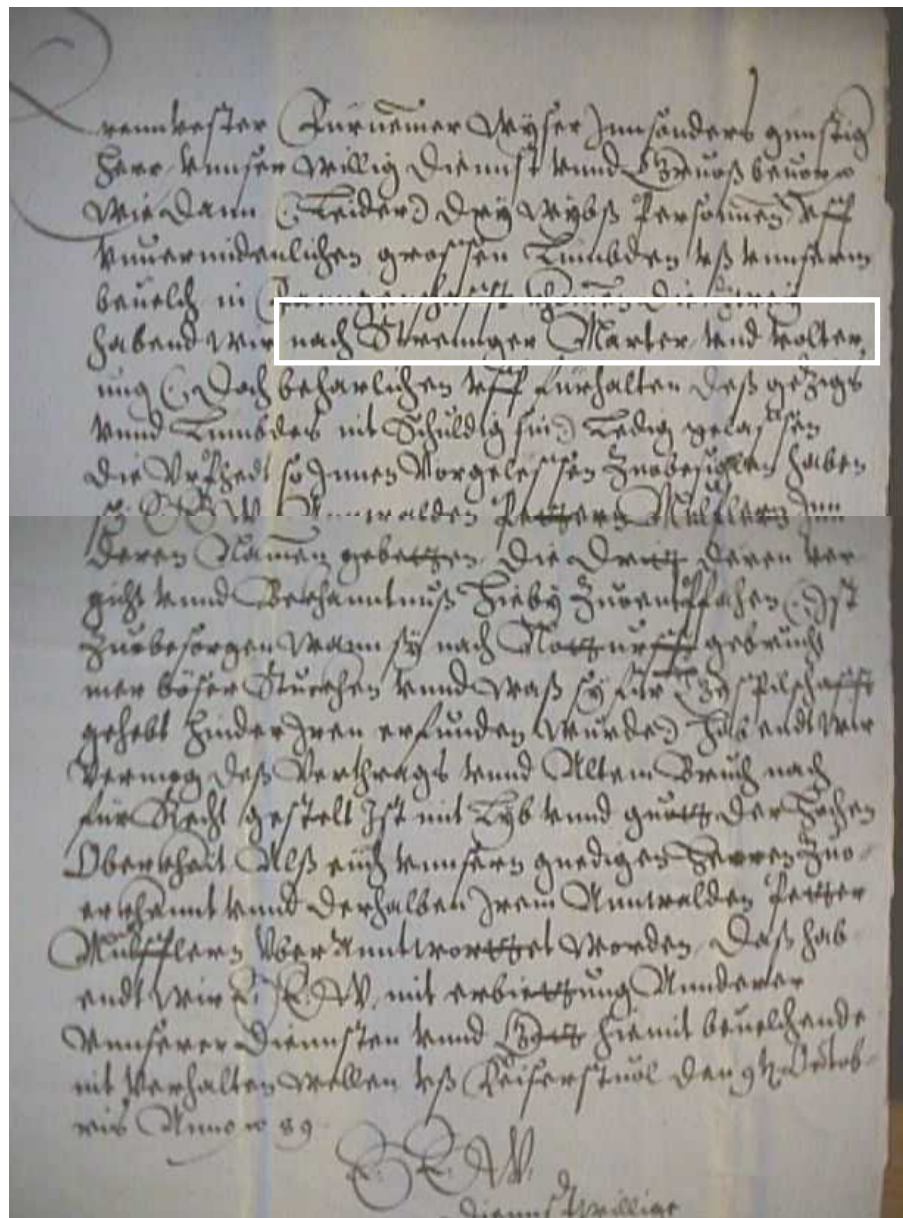 vennvester Fürnemer Wÿser Innsonders gunstig
Herr vnnser willig Diennst vnnd Gruoß beuor
Wie Dann (Leider) Drÿ Wÿbß Persomen vff
vnuermidenlichen grossen Lümbden vß vnnserm
beuelch in die
habend wir nach Strennger Marter vnd volter,
ung (Doch beharlichen vff fürhalten Deß gezigs
vnnd Lümbdes nit Schuldig sin) Ledig gelassen
die Vrphedt so Innen Vorgelessen Zuobesiglen haben
E. W. Annwalden Pettern Inn
deren Namen gebetten, Die Dritt deren ver-
gicht vnnd Bekhanntnuß Hiebÿ Zuoentpfahen (Ist
Zuobesorgen Wann sÿ nach Notturfft gebrucht
mer böser Stuckhen vnnd Waß sÿ für Gespilschafft
gehebt Hinder Iren erfunden Wurde) habendt Wir
Vermög Deß Verthrags vnnd Altem Bruch nach
für Recht gestelt Ist mit Lÿb vnnd guott Der Hochen
Oberkheit Alß eüch vnnsern gnedigen Herren Zuo-
erkhannt vnnd Derhalben Irem Annwalden Petter
vber Anntworttet Worden, Daß hab-
endt Wir E. E. W. mit erbiettung Annderer
Vnnserer Diennsten vnnd Gott hiemit beuelchende
nit Verhalten Wellen vß Keiserstuol Den 9t. Octob-
ris Anno 89
E. E. W.
Dienns Willige